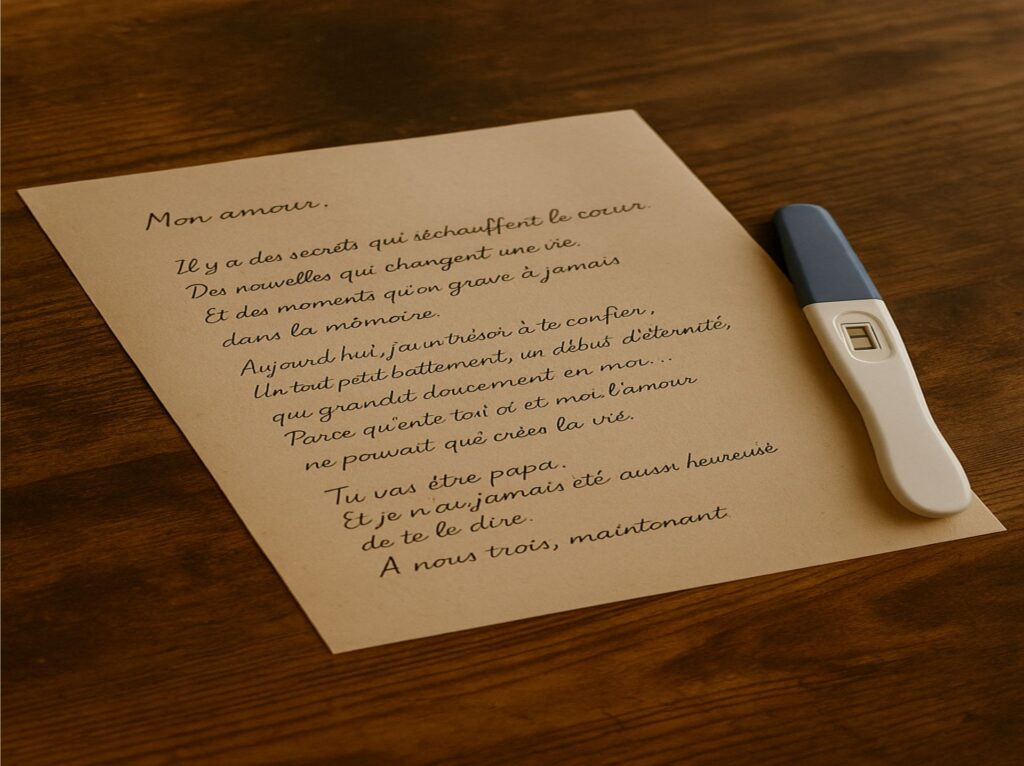 Mon amour.
Il y a des secrets qui séchauffent le cœur.
Des nouvelles qui changent une vie.
Et des moments qu'on grave à jamais
dans la mômoire.
Aujourd hui, j'ai un trésor à te confier,
Un tout petit battement, un début d'éternité,
qui grandit doucement en moi...
Parce qu'ente toi oi et moi. l'amour
ne pouvait què crèes la vié.
Tu vas être papa.
Et je n'ai jamais été aussi heureusé
de te le dire.
A nous trois, maintonant.